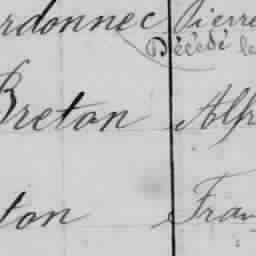 rdonnec Pierre
Décédé le
Breton Alfr
ton Fran